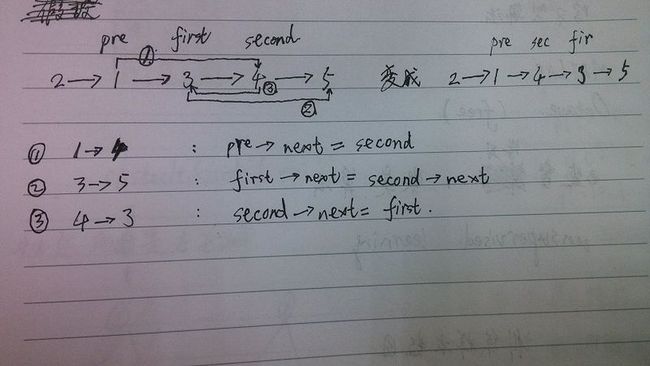 pre first second pre sec fir
①
2 → 1 → 3 → 4 → 5 变成 2 → 1 → 4 → 3 → 5
③
②
① 1 → 4 : pre → next = second
② 3 → 5 : first → next = second → next
③ 4 → 3 : second → next = first.
unsupervised learning